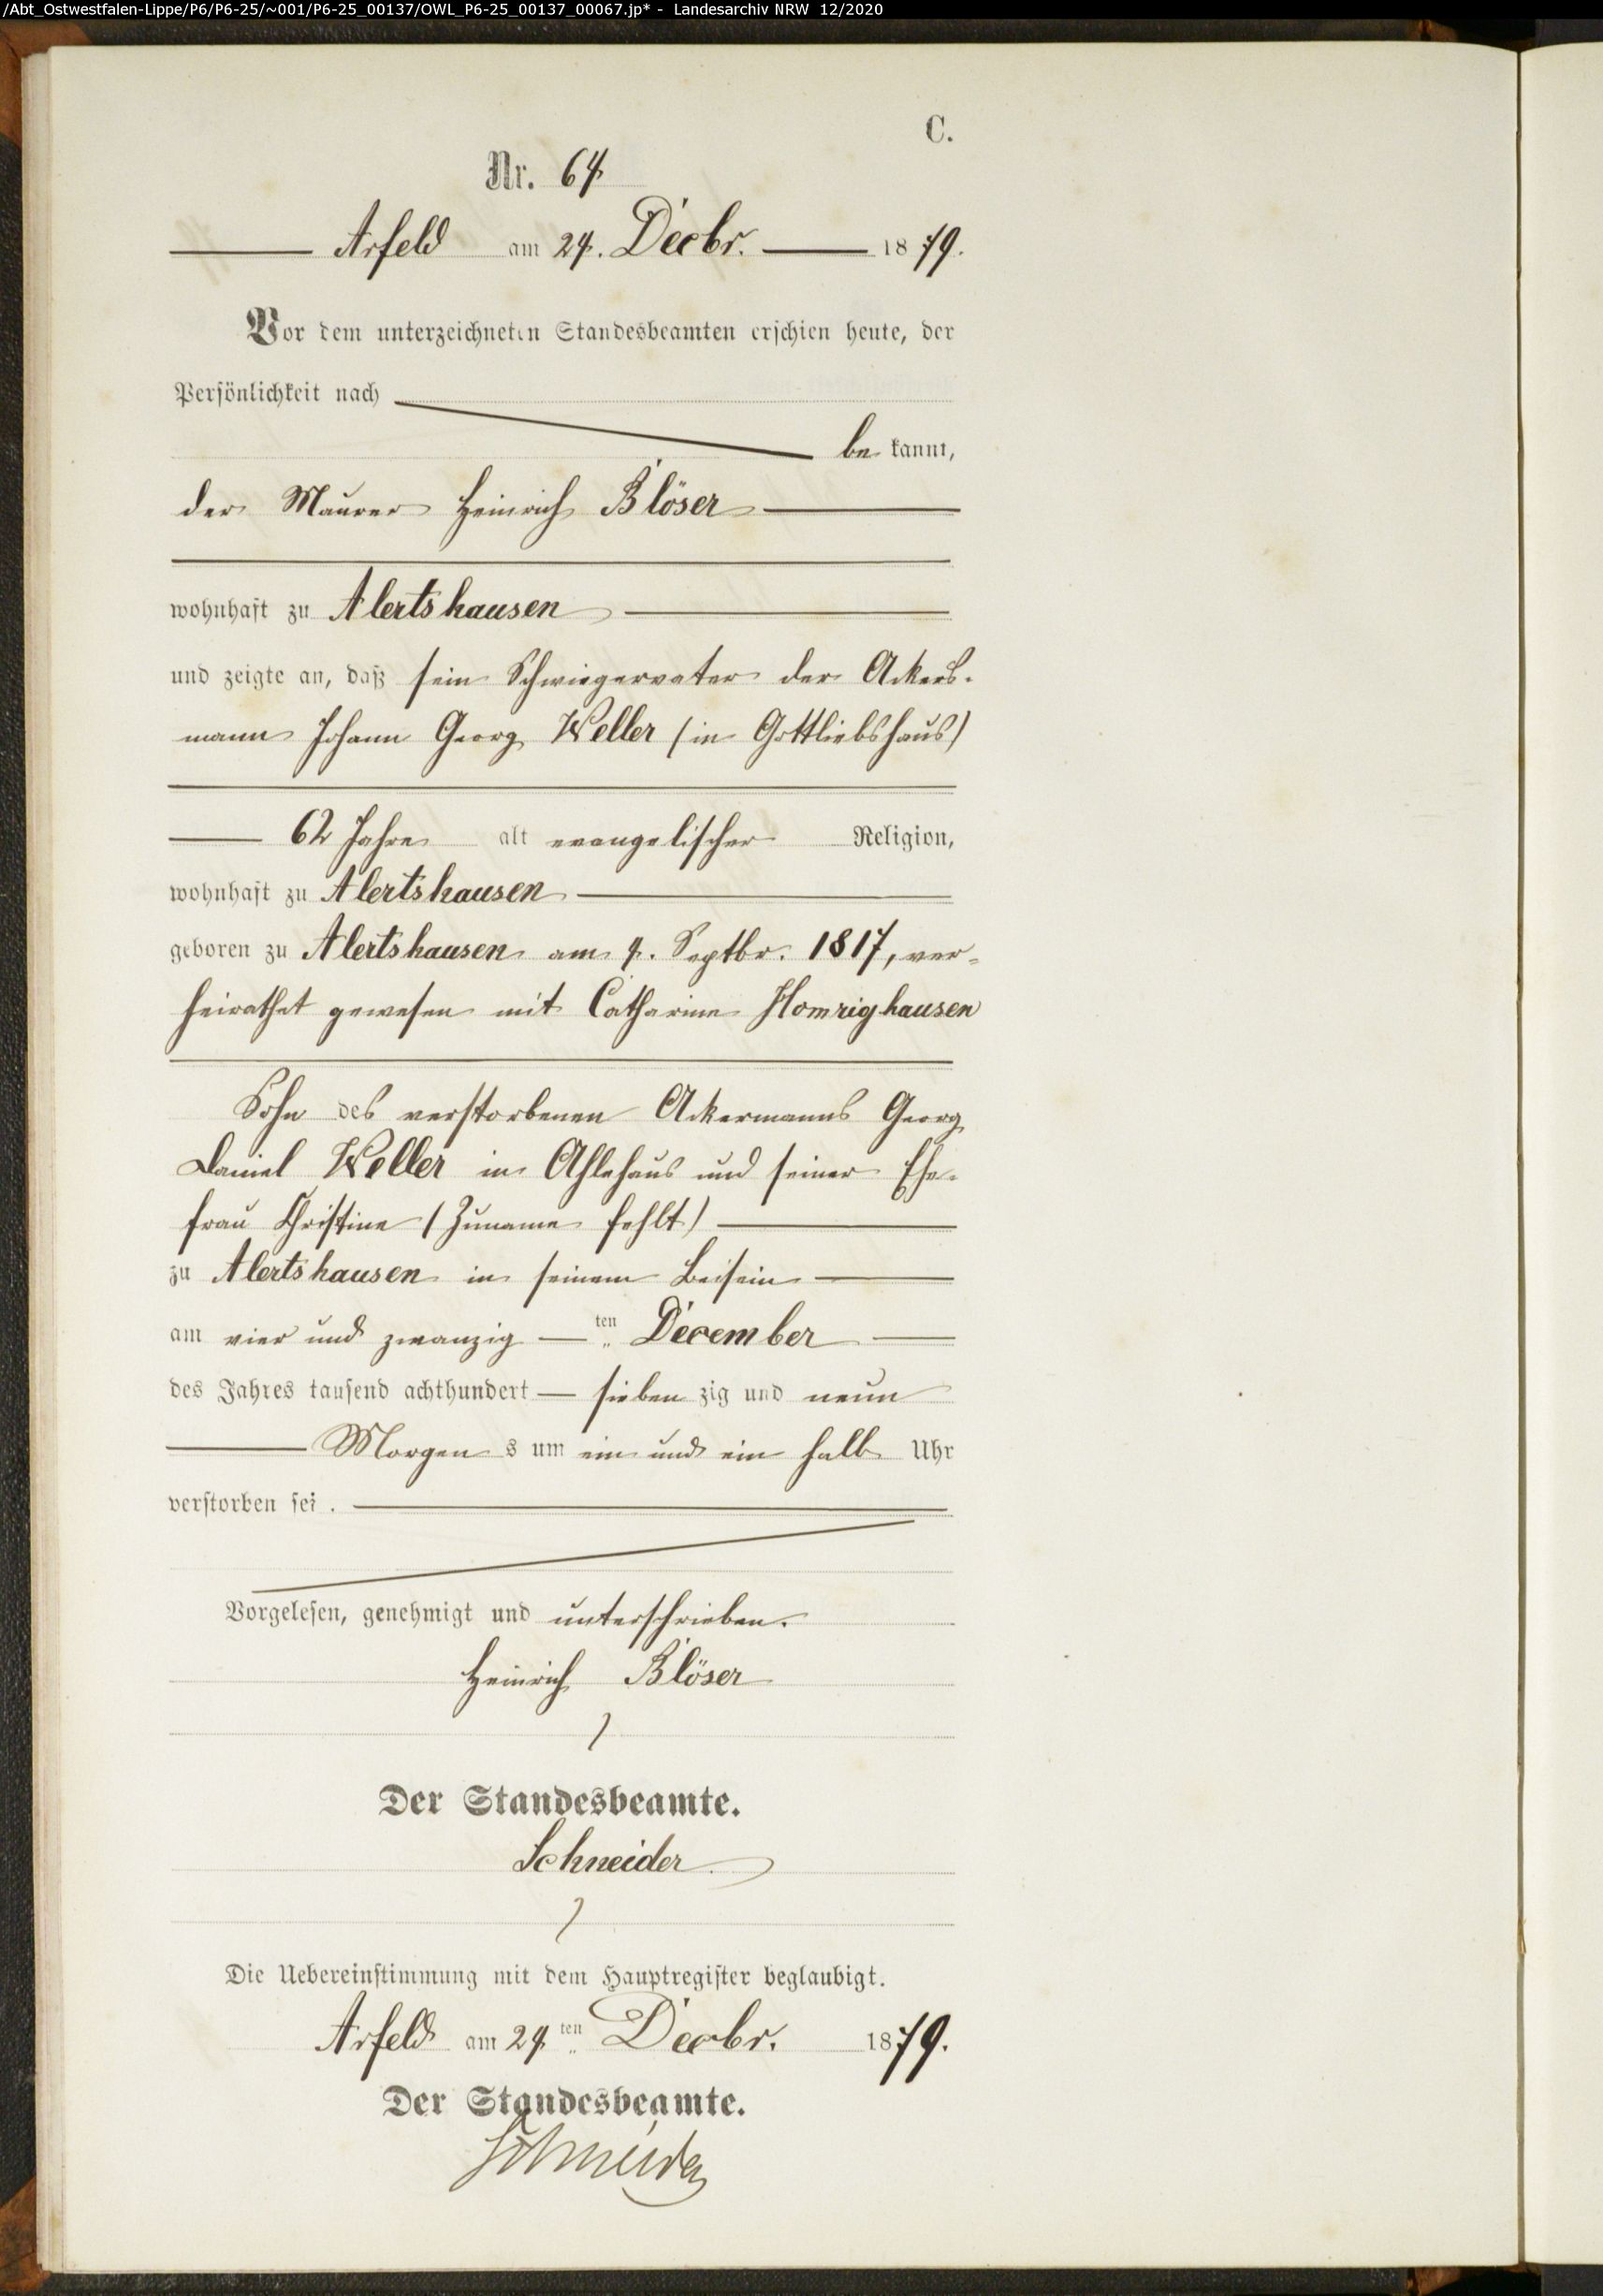 /Abt_Ostwestfalen-Lippe/P6/P6-25/~001/P6-25_00137/OWL_P6-25_00137_00067.jp* - Landesarchiv NRW 12/2020
C.
Nr. 64
Arfeld am 24. Decbr. 1879.
Vor dem unterzeichneten Standesbeamten erschien heute, der
Persönlichkeit nach
be kannt,
der Maurer Heinrich Blöser
wohnhaft zu Alertshausen
und zeigte an, daß sein Schwiegervater der Ackers-
mann Johann Georg Weller (in Gottliebshaus)
62 Jahre alt evangelischer Religion,
wohnhaft zu Alertshausen
geboren zu Alertshausen am 4. Septbr. 1817, ver-
heirathet gewesen mit Catharine Homrighausen
Sohn des verstorbenen Ackermanns Georg
Daniel Weller in Ahlehaus und seiner Ehe-
frau Christine (Zuname fehlt)
zu Alertshausen in seinem Beisein
am vier und zwanzig ten December
des Jahres tausend achthundert sieben zig und neun
Morgen s um ein und ein halb Uhr
verstorben sei .
Vorgelesen, genehmigt und unterschrieben.
Heinrich Blöser
Der Standesbeamte.
Schneider
Die Uebereinstimmung mit dem Hauptregister beglaubigt.
Arfeld am 24 ten Decbr. 1879.
Der Standesbeamte.
Schneider